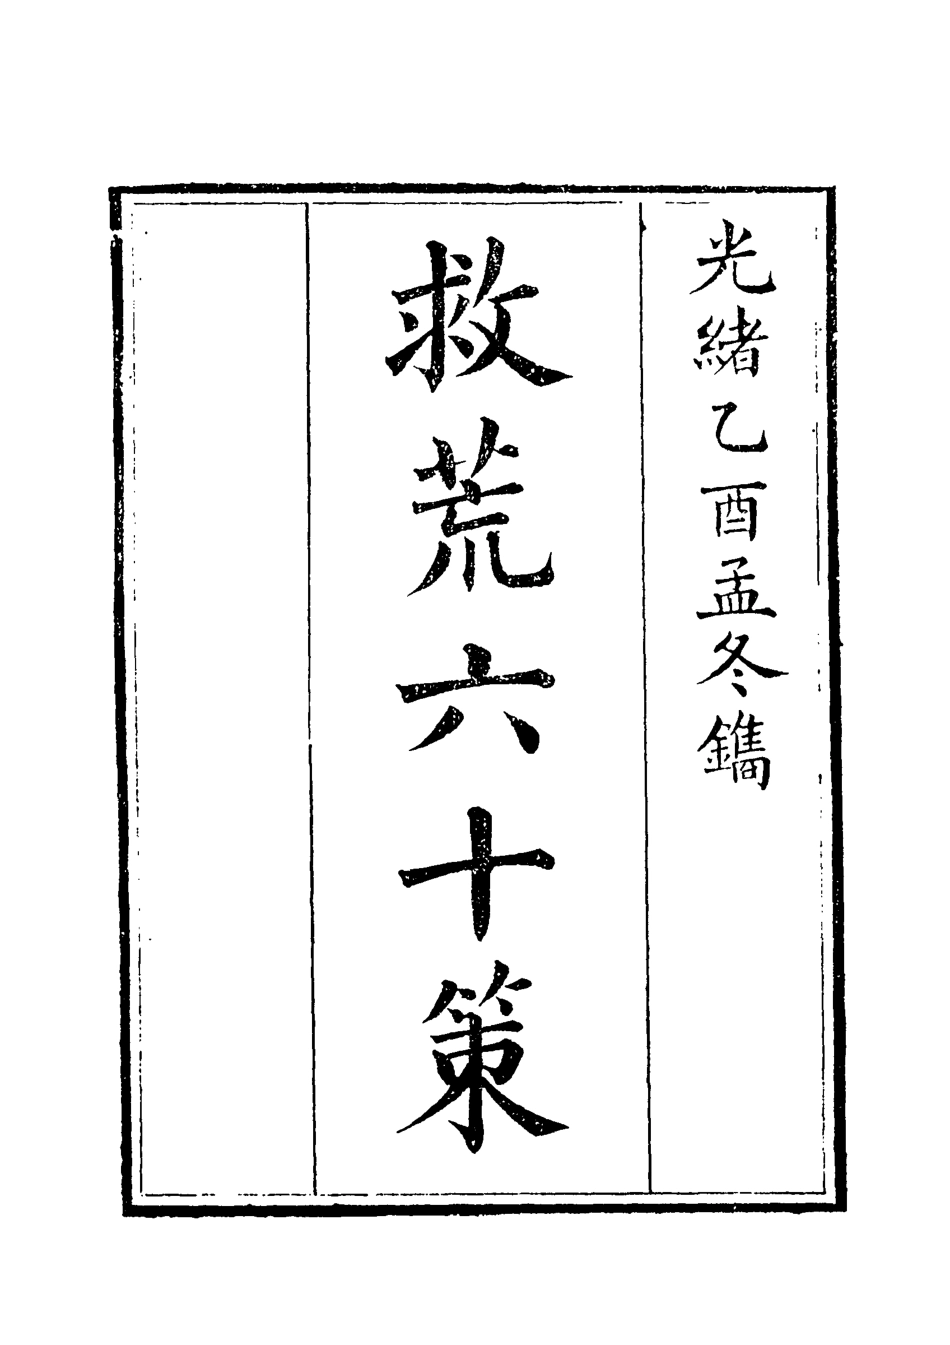 光緒乙酉孟冬鐫
救荒六十策